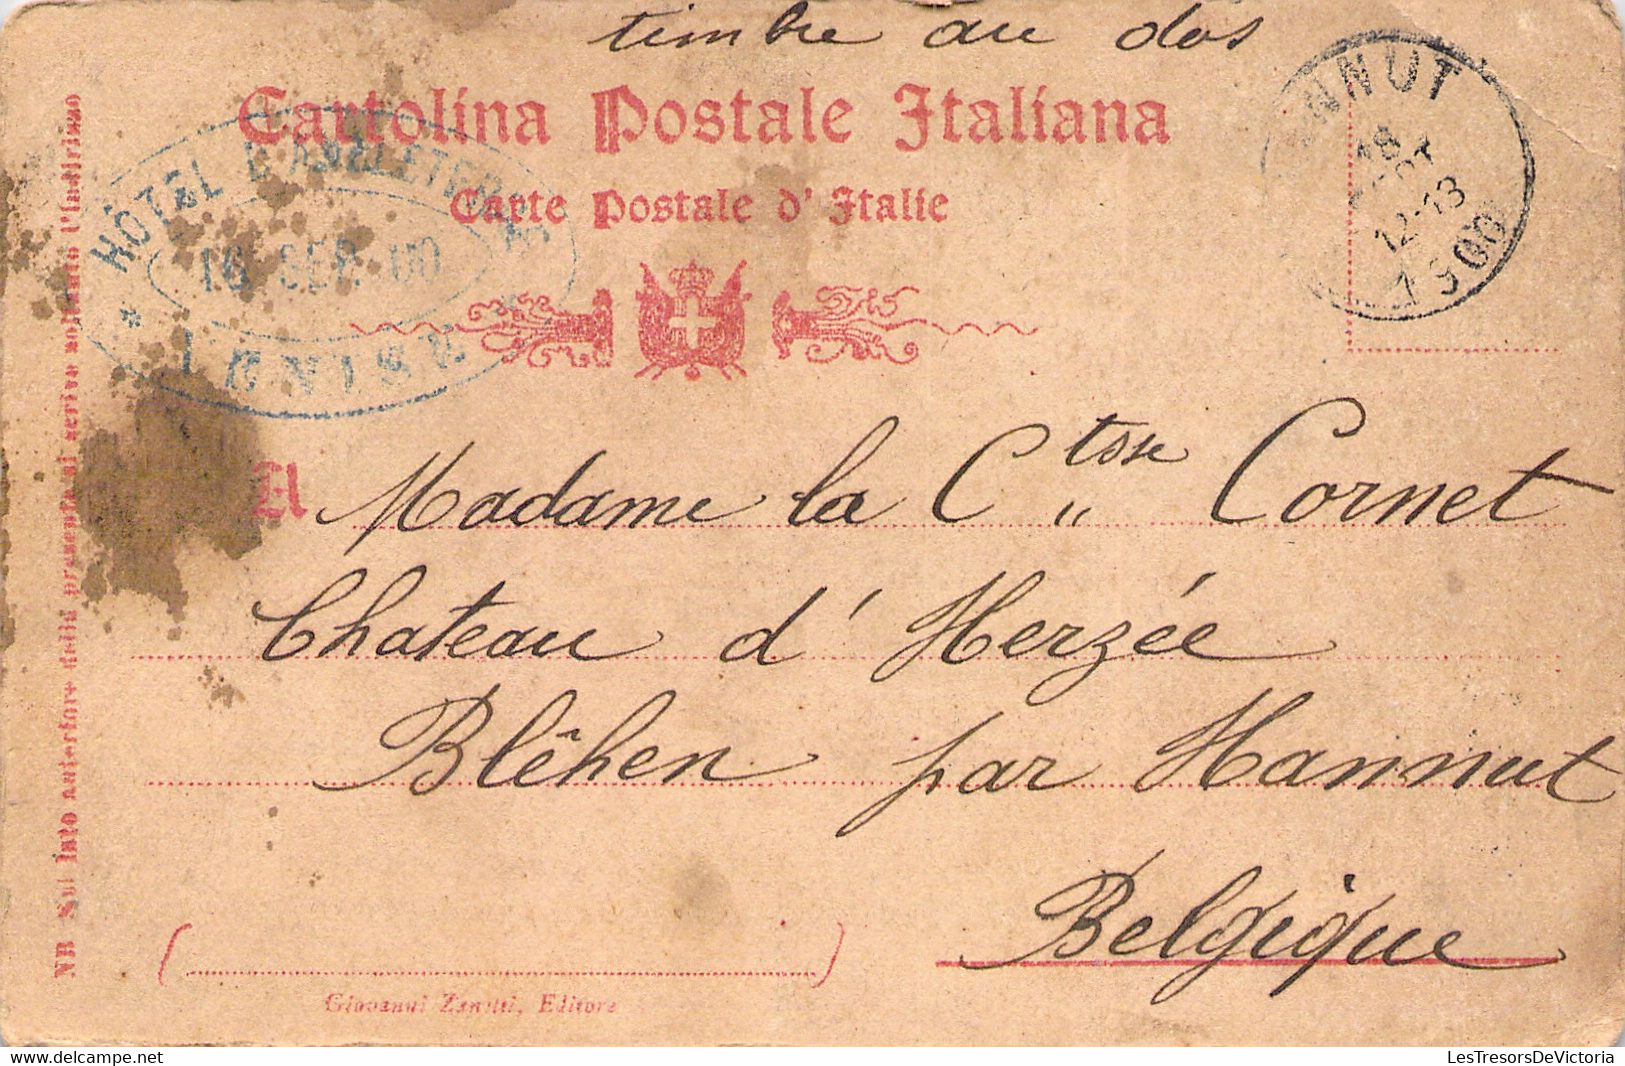 timbre au dos
Cartolina Postale Italiana
Carte Postale d'Italie
HÔTEL D'ANGLETERRE
16 SEP. 00
* VENISE
NNUT
18
12-13
1900
A Madame la Ctsse Cornet
Chateau d'Herzée
Blêhen par Hannut
Belgique
Giovanni Zanetti, Editore
NB Sul lato anteriore della presente si scrive soltanto l'indirizzo
LesTresorsDeVictoria